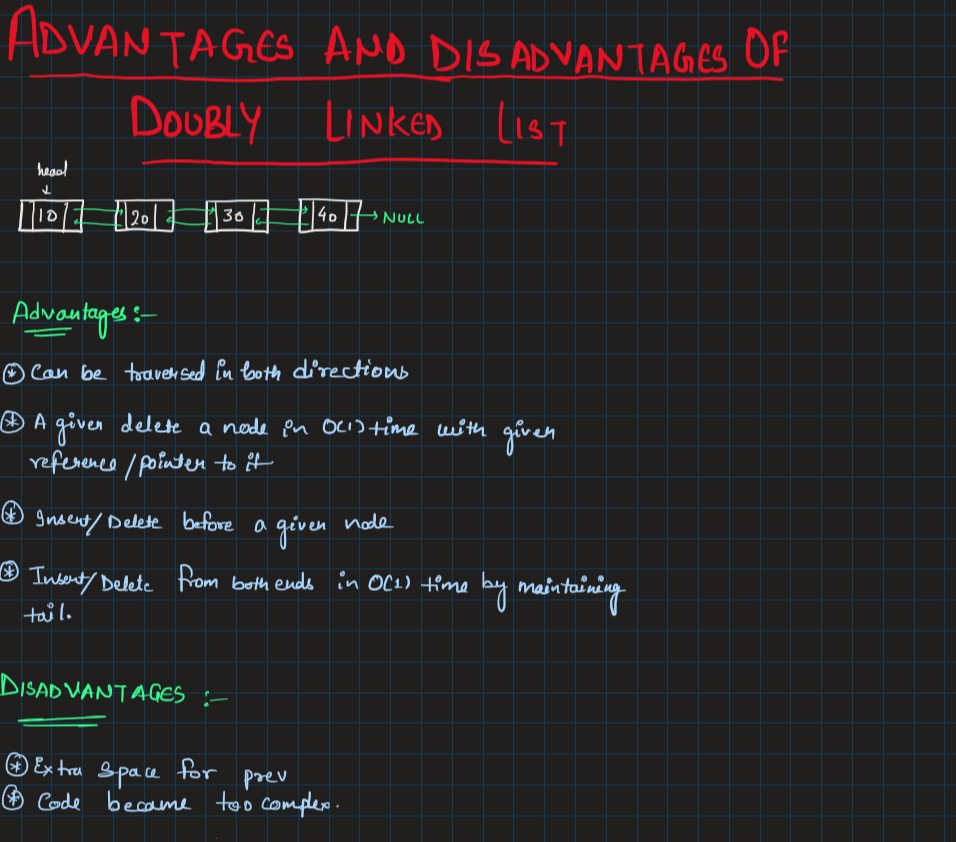 ADVANTAGES AND DISADVANTAGES OF
DOUBLY LINKED LIST
head
10 20 30 40 NULL
Advantages :-
* Can be traversed in both directions
* A given delete a node in O(1) time with given
reference/pointer to it
* Insert/Delete before a given node
* Insert/Delete from both ends in O(1) time by maintaining
tail.
DISADVANTAGES :-
* Extra space for prev
* Code became too complex.